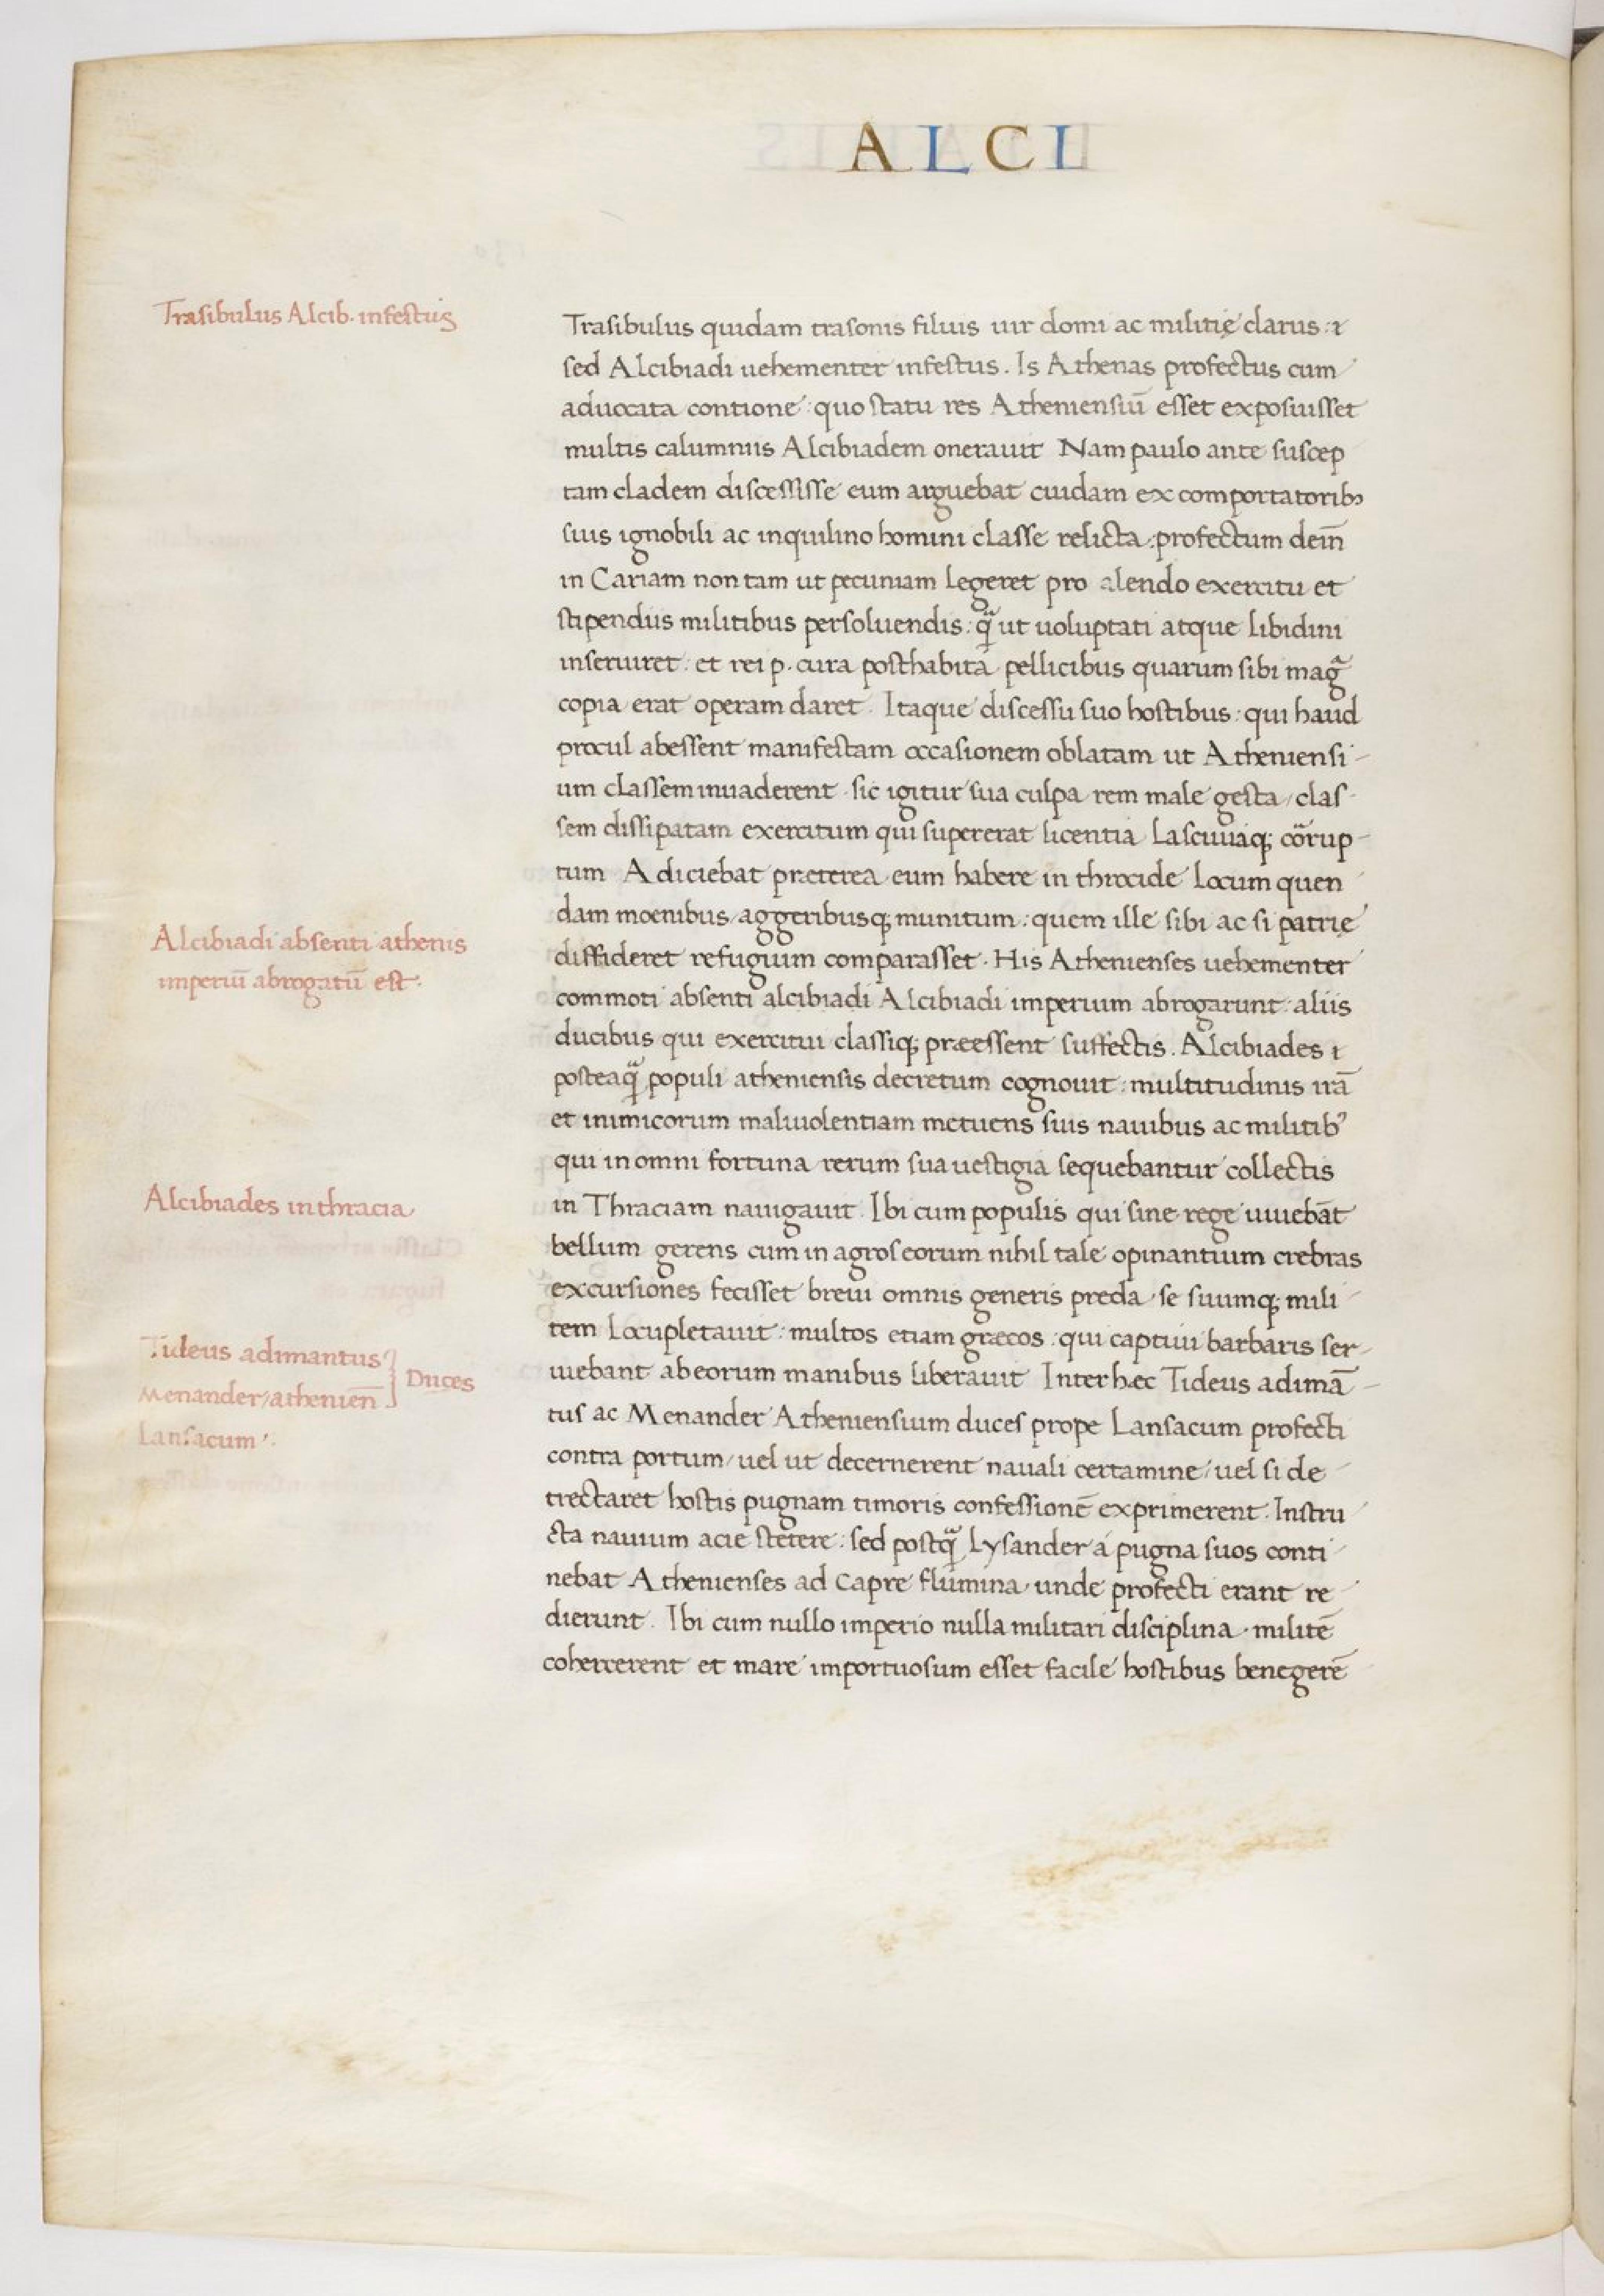 ALCI
Trasibulus Alcib. infestus
Trasibulus quidam trasonis filius uir domi ac militię clarus : &
sed Alcibiadi uehementer infestus . Is Athenas profectus cum
aduocata contione : quo statu res Atheniensiū esset exposuisset
multis calumniis Alcibiadem onerauit Nam paulo ante suscep
tam cladem discessisse eum arguebat cuidam ex comportatorib;
suis ignobili ac inquilino homini classe relicta : profectum dein̄
in Cariam non tam ut pecuniam legeret pro alendo exercitu et
stipendiis militibus persoluendis : q̃ ut uoluptati atque libidini
inseruiret : et rei p. cura posthabita pellicibus quarum sibi mag̃
copia erat operam daret . Itaque discessu suo hostibus : qui haud
procul abessent manifestam occasionem oblatam ut Atheniensi-
um classem inuaderent . sic igitur sua culpa rem male gesta / clas-
sem dissipatam exercitum qui supererat licentia lasciuiaq; cõrup-
tum Adiciebat præterea eum habere in throcide locum quen
dam moenibus aggeribusq; munitum : quem ille sibi ac si patrię
diffideret refugium comparasset . His Athenienses uehementer
Alcibiadi absenti athenis
imperiū abrogatū est .
commoti absenti alcibiadi Alcibiadi imperium abrogarunt : aliis
ducibus qui exercitui classiq; præessent suffectis . Alcibiades &
posteaq̃ populi atheniensis decretum cognouit : multitudinis irā
et inimicorum maliuolentiam metuens suis nauibus ac militib'
qui in omni fortuna rerum sua uestigia sequebantur collectis
Alcibiades in thracia
in Thraciam nauigauit . Ibi cum populis qui sine rege uiuebāt
bellum gerens cum in agros eorum nihil tale opinantium crebras
excursiones fecisset breui omnis generis preda se suumq; mili
tem locupletauit : multos etiam græcos : qui captiui barbaris ser-
Tideus adimantus
Menander / athenien̄ } Duces
Lansacum .
uiebant ab eorum manibus liberauit Inter hæc Tideus adimā-
tus ac Menander Atheniensium duces prope Lansacum profecti
contra portum / uel ut decernerent nauali certamine / uel si de-
trectaret hostis pugnam timoris confessionē exprimerent . Instru
cta nauium acie stetere : sed postq̃ Lysander á pugna suos conti
nebat Athenienses ad Capre flumina . unde profecti erant re-
dierunt . Ibi cum nullo imperio nulla militari disciplina . militē
cohercerent et mare importuosum esset facile hostibus benegerē